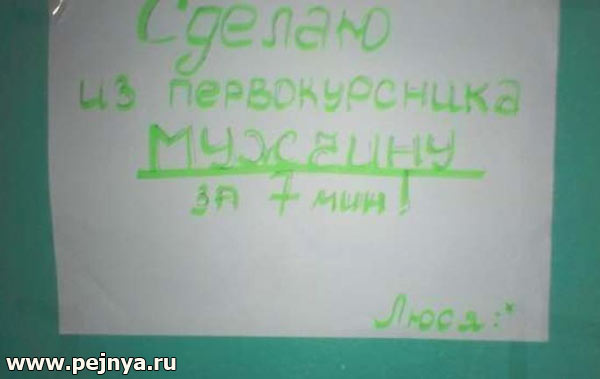 Сделаю
из первокурсника
МУЖчину
за 7 мин!
Люся:*
www.pejnya.ru